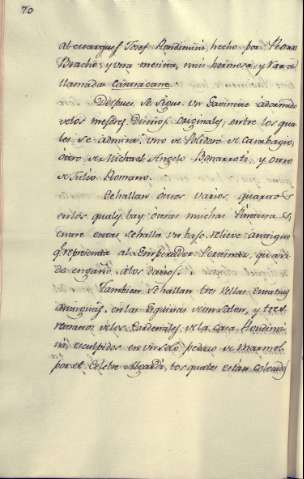 70
al enarques Josef Rondinini, hecho por Pedro
Bracho; y otra menina, mui hermosa, y rara
llamada Cantacane.
Despues se sigue un Camino adornado
de los mejores Dibuxos originales, entre los qua
les se admira, uno de Polidoro de Caravagio,
otro de Michael Angelo Bonarrota, y otro
de Julio Romano.
Se hallan otros varios, quartos
en los quales hay otras muchas Pinturas. E
entre estas se halla un baxo relieve antiguo
q.e representa al Emperador
da engaño a los
Tambien se hallan tres bellas estatuas
antiguas, en las Esquinas de un Salon, y tres
retratos de los Cardenales, de la casa Rondini
ni, esculpidos en un solo pedazo de Marmol
por el Celebre Algardi, los quales estan colocados